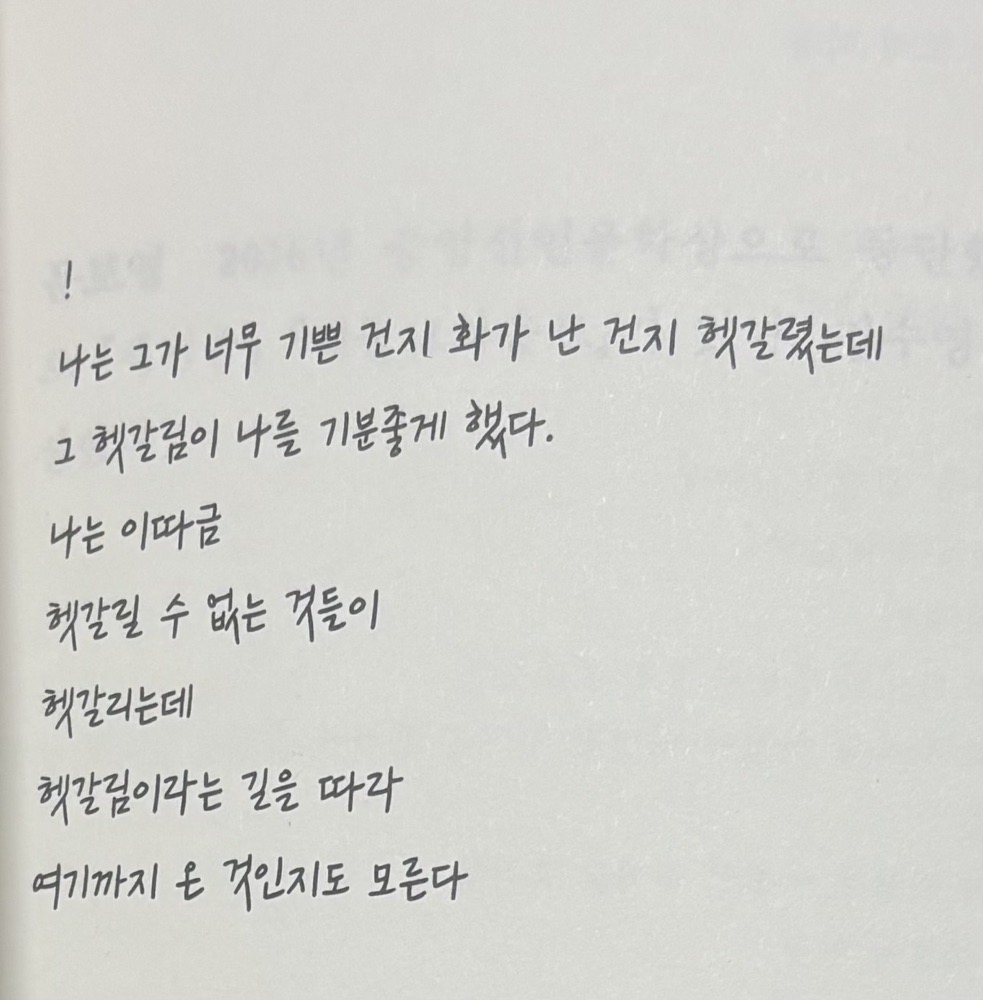 !
나는 그가 너무 기쁜 건지 화가 난 건지 헷갈렸는데
그 헷갈림이 나를 기분좋게 했다.
나는 이따금
헷갈릴 수 없는 것들이
헷갈리는데
헷갈림이라는 길을 따라
여기까지 온 것인지도 모른다